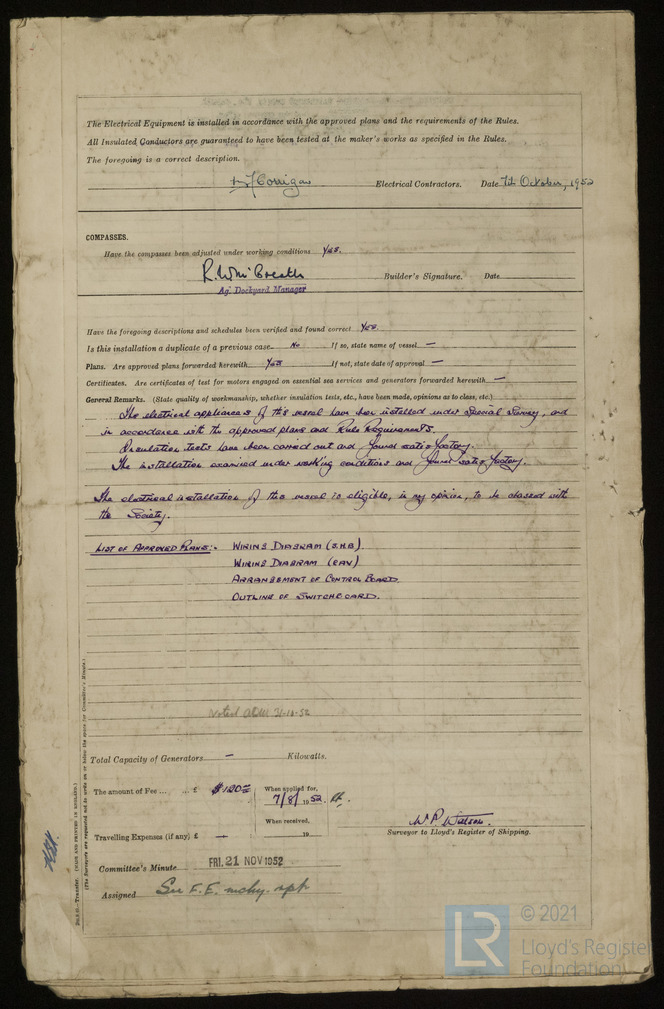 The Electrical Equipment is installed in accordance with the approved plans and the requirements of the Rules.
All Insulated Conductors are guaranteed to have been tested at the maker's works as specified in the Rules.
The foregoing is a correct description.
Corrigan Electrical Contractors. Date 7th October, 1952
COMPASSES.
Have the compasses been adjusted under working conditions Yes.
Builder's Signature. Date
Ag. Dockyard Manager
Have the foregoing descriptions and schedules been verified and found correct Yes.
Is this installation a duplicate of a previous case No If so, state name of vessel —
Plans. Are approved plans forwarded herewith Yes If not, state date of approval —
Certificates. Are certificates of test for motors engaged on essential sea services and generators forwarded herewith —
General Remarks. (State quality of workmanship, whether insulation tests, etc., have been made, opinions as to class, etc.)
The electrical appliances of this vessel have been installed under Special Survey, and
in accordance with the approved plans and Rule Requirements.
Insulation tests have been carried out and found satisfactory.
The installation examined under working conditions and found satisfactory.
The electrical installation of this vessel is eligible, in my opinion, to be classed with
the Society.
LIST OF APPROVED PLANS:- WIRING DIAGRAM (S.H.B).
WIRING DIAGRAM (CAV)
ARRANGEMENT OF CONTROL BOARD
OUTLINE OF SWITCHBOARD.
Noted 31-10-52
Total Capacity of Generators — Kilowatts.
The amount of Fee ... ... £ $120 When applied for, 7/8/1952
When received, 19
Travelling Expenses (if any) £ —
W.P. Watson.
Surveyor to Lloyd's Register of Shipping.
Committee's Minute FRI. 21 NOV 1952
Assigned See F.E. mchy. rpt
Transfer. (MADE AND PRINTED IN ENGLAND.)
(The Surveyors are requested not to write on or below the space for Committee's Minute.)
LR
© 2021
Lloyd's Register
Foundation